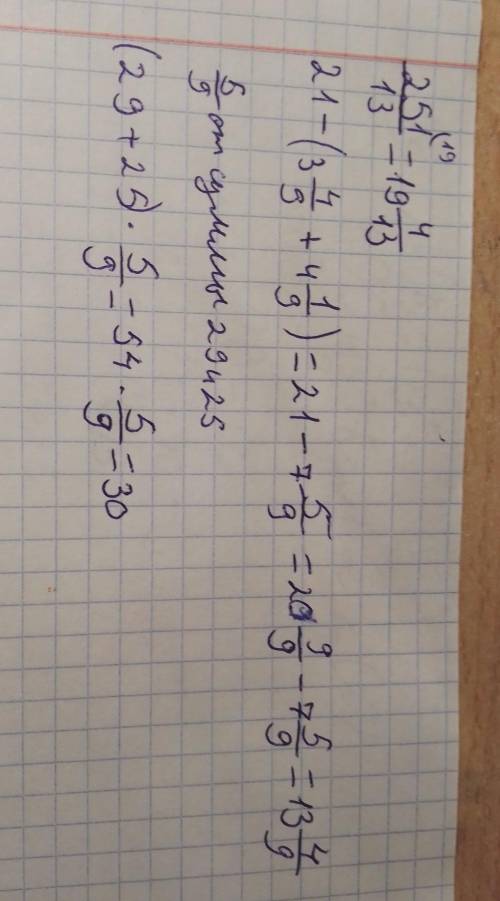 251/13 (19 = 19 4/13
21 − (3 4/9 + 4 1/9) = 21 − 7 5/9 = 20 9/9 − 7 5/9 = 13 4/9
5/9 от суммы 29 и 25
(29 + 25) · 5/9 = 54 · 5/9 = 30